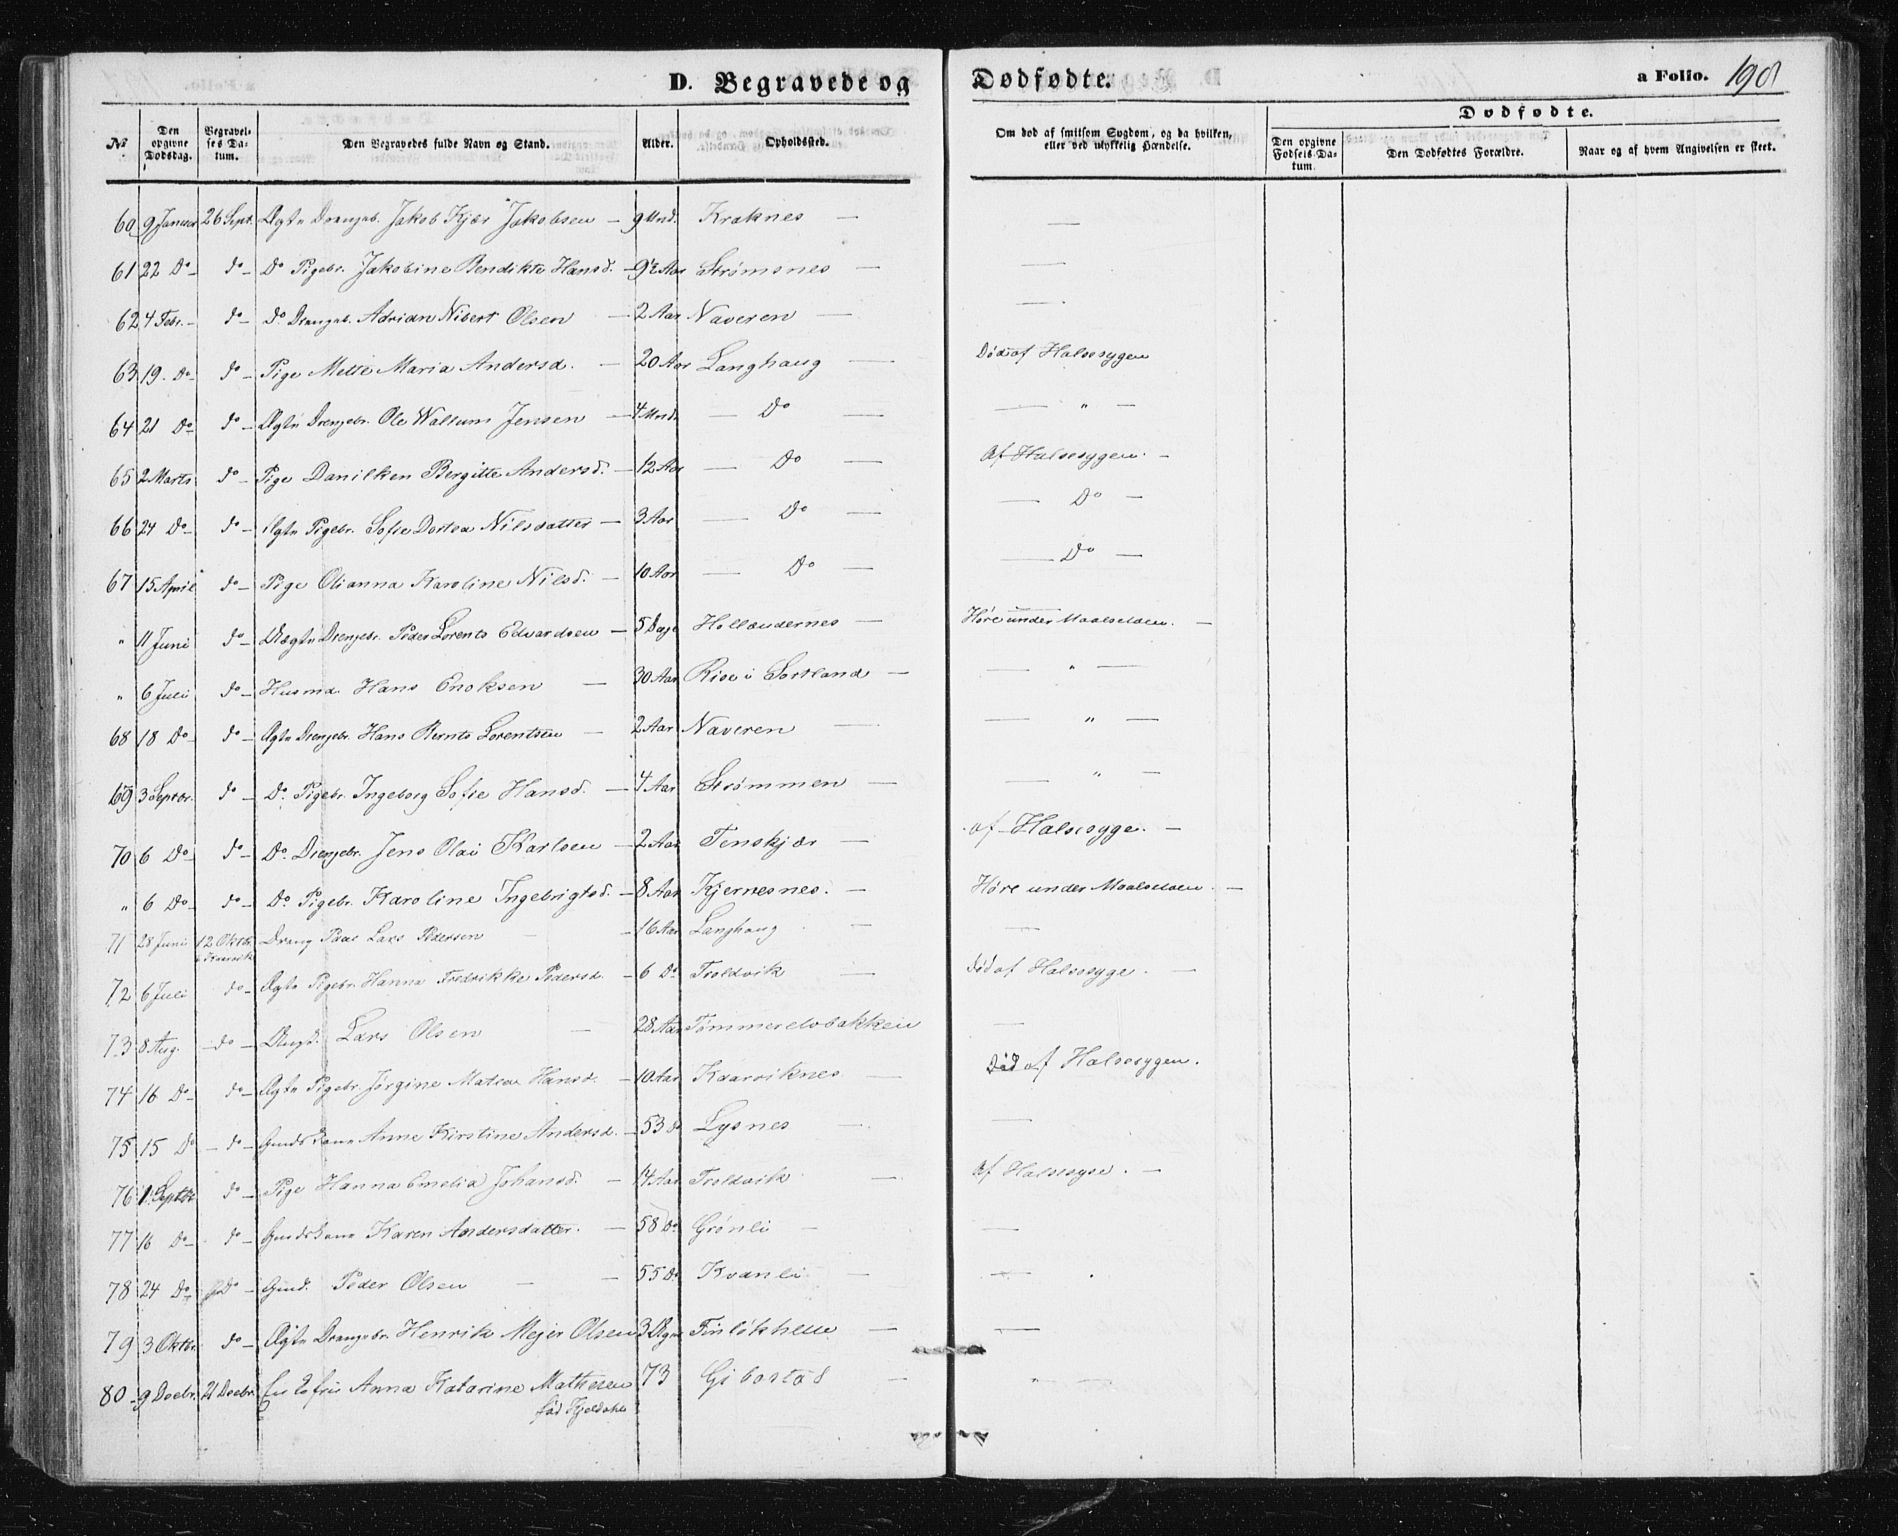 D. Begravede og Dødfødte.
a Folio. 198
Dødfødte.
№ | Den opgivne Dødsdag. | Begravelses Datum. | Den Begravedes fulde Navn og Stand. | Alder. | Opholdssted. | Om død af smitsom Sygdom, og da hvilken, eller ved ulykkelig Hændelse. | Den opgivne Fødsels-Datum. | Den Dødfødtes Forældre. | Naar og af hvem Angivelsen er skeet.
60 9 Januar 26 Sept. Ægte Drengeb. Jakob Kjær Jakobsen — 9 Mnd. Kraknes — —
61 22 Do - do - Do Pigebr. Jakobine Bendikte Hansd. - 9½ Aar Strømsnes — —
62 4 Febr. - do - Do Drengeb. Adrian Nibert Olsen — 2 Aar Naveren — —
63 19. Do - do - Pige Mette Maria Andersd. — 20 Aar Langhaug — Død af Halssygen
64 21 Do - do - Ægte Drengebr. Ole Waltum Jensen — 4 Mnd. — Do — — " —
65 2 Marts do - Pige Danilken Bergitte Andersd. - 12 Aar — Do — Af Halssygen. —
66 24 Do - do - Ægte Pigebr. Sofie Dortea Nilsdatter — 3 Aar — Do — — Do —
67 15 April do - Pige Olianna Karoline Nilsd. — 10 Aar — Do — — Do —
" 11 Juni do - Uægte Drengebr. Peder Lorents Edvardsen — 5 Dage Hollændernes — Høre under Maalselven. —
" 6 Juli do - Husmd. Hans Enoksen — 30 Aar Rise i Sortland — — " —
68 18 Do - do - Ægte Drengebr. Hans Bernts Lorentsen — 2 Aar Naveren — — " —
69 3 Septbr. do - Do. Pigebr. Ingeborg Sofie Hansd. — 4 Aar Strømmen — — " —
70 6 Do - do - Do. Drengebr. Jens Olai Karlsen — 2 Aar Tenskjær — af Halssyge. —
" 6 Do - do - Do Pigebr. Karoline Ingebrigtsd. - 8 Aar Kjernesnes. — Høre under Maalselven. —
71 28 Juni 12 Oktbr. Dreng Lars Pedersen — 16 Aar Langhaug —
72 6 Juli do - Ægte Pigebr. Hanna Fredrikke Pedersd. - 6 Do Troldvik — Død af Halssyge. —
73 8 Aug. - do - Lars Olsen — 28 Aar Tømmerelvbakken —
74 16 Do - do - Ægte Pigebr. Jørgine Matea Hansd. - 10 Aar Kaarviknes — Død af Halssygen.
75 15 Do - do - Gmds Kone Anne Kirstine Andersd. - 53 do Lysnes — —
76 1. Septbr. do - Pige Hanna Emelia Johansd. - 14 Aar Troldvik — Af Halssyge. —
77 16 Do do - Gmds Kone Karen Andersdatter. — 58 Do Grønli — —
78 24 Do Do - Gmd. Peder Olsen — — 55 Do Kvanli — —
79 3 Oktbr. do - Ægte Drengebr. Henrik Mejer Olsen 3 Finløkhelle — —
80 - 9 Decbr. 21 Decbr. Anna Katarine Mathesen 73 Gibostad — " —
fød Kjeldahl